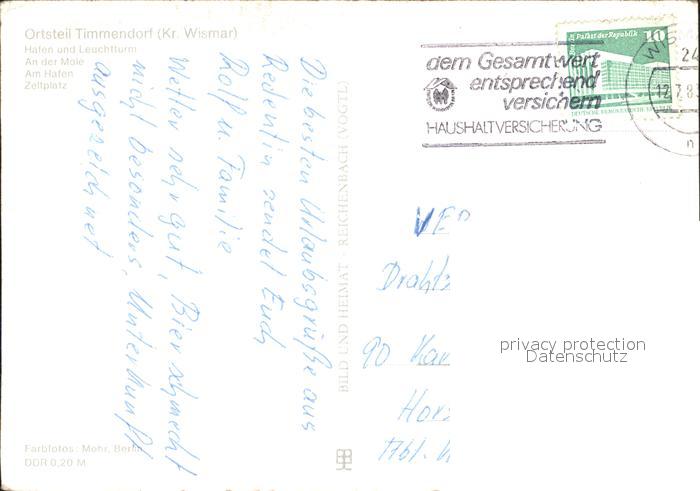 Ortsteil Timmendorf (Kr. Wismar)
Hafen und Leuchtturm
An der Mole
Am Hafen
Zeltplatz
Die besten Urlaubsgrüße aus
Redentin sendet Euch
Rolf u. Familie
Wetter sehr gut, Bier schmeckt
nicht besonders, Unterkunft
ausgezeichnet
BILD UND HEIMAT · REICHENBACH (VOGTL)
dem Gesamtwert
entsprechend
versichern
HAUSHALTVERSICHERUNG
Palast der Republik
10
DEUTSCHE DEMOKRATISCHE
WIS
24
12.7.8
VEB
90
privacy protection
Datenschutz
Farbfotos: Mohr, Berlin
DDR 0,20 M